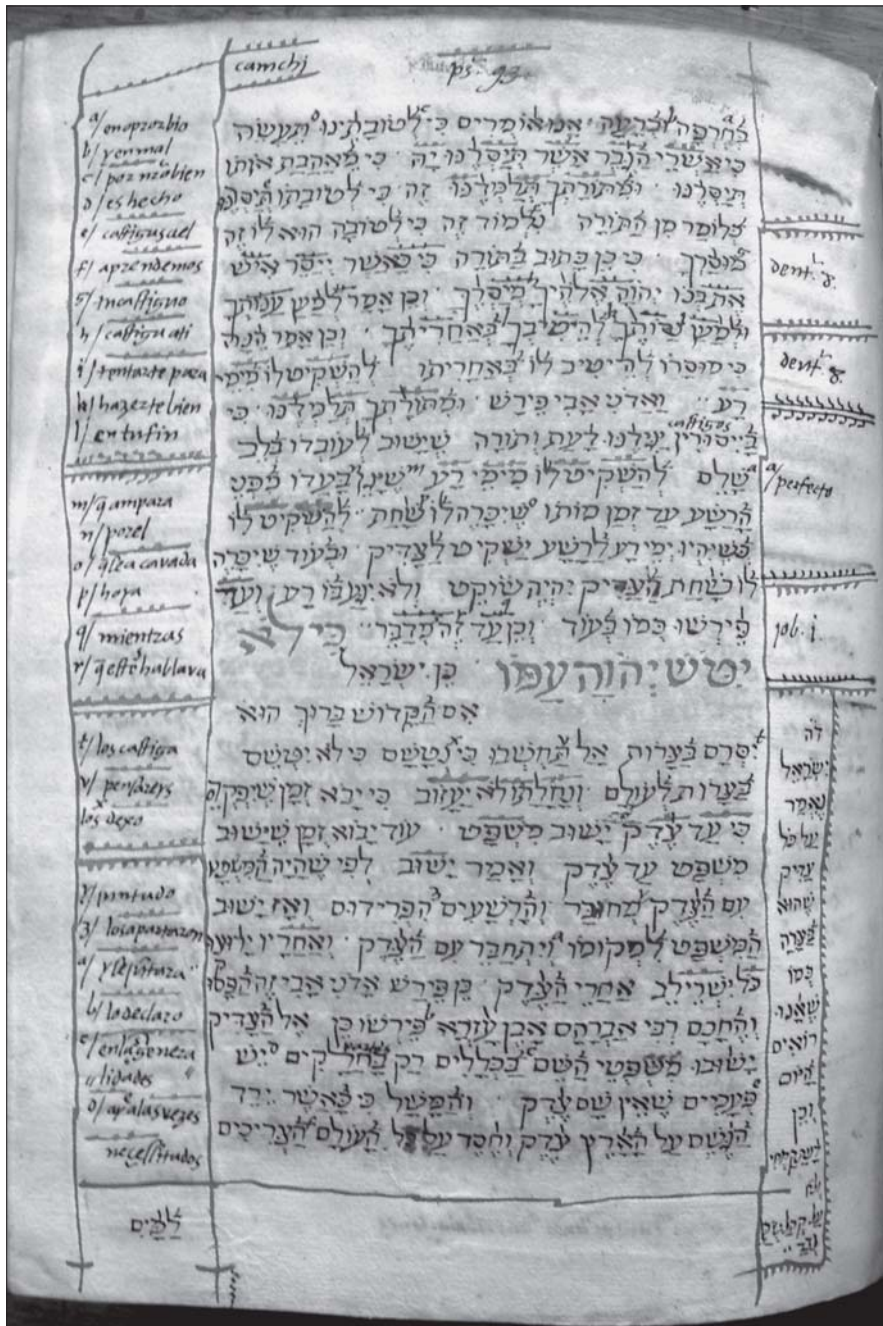 camchj
ps. 93
a/ enoprozbio
b/ yenmal
c/ poznrobien
d/ es hecho
e/ castigus ael
f/ aprendemos
g/ tu castiguo
h/ castiguati
i/ tentarte para
k/ hazerte bien
l/ entufin
m/ q̃ ampara
n/ pozel
o/ q̃ lea cavada
p/ hoya
q/ mientras
r/ q̃ este hablava
t/ los castiga
v/ pensareys
x los dexo
z/ juntudo
3/ losapartaron
b/ lo declaro
lidades
necessitudos
בחרפה וברעה אנו אומרים כי לטובתינו תעשה
כי אשרי הגבר אשר תיסרנו יה כי מאהבת אותו
תיסרנו ומתורתך תלמדנו זה כי לטובתו תיסרנו
כלומר מן התורה נלמוד זה כי לטובה הוא לו זה
מוסרך כי כן כתוב בתורה כי כאשר ייסר איש
את בנו יהוה אלהיך מיסרך וכן אמר למען ענותך
ולמען נסותך להיטיבך באחריתך וכן אמר הנה
כי מוסרו להיטיב לו באחריתו להשקיט לו מימי
רע ואדני אבי פירש ומתורתך תלמדנו כי
castigos
בייסורין יגילנו לדעת ותורה שיטוב לעובדו בלב
שלם להשקיט לו מימי רע שיגן בעדו מפני
הרשע עד זמן מותו שיכרה לו שחת להשקיט לו
כשיהיו ימי רע לרשע ישקיט לצדיק ובעוד שיכרה
לו שחת הצדיק יהיה שוקט ולא יגע בו רע ועד
פירשו כמו בעוד וכן עד זה מדבר כי לא
יטש יהוה עמו כן ישראל
אם הקדוש ברוך הוא
יסרם בצרות אל תחשבו כי נטשם כי לא יטשם
בצרות לעולם ונחלתו לא יעזוב כי יבא זמן שיפקדם
כי עד צדק ישוב משפט עוד יבוא זמן שישוב
משפט עד צדק ואמר ישוב לפי שהיה המשפט
עם הצדק מחובר והרשעים הפרידום ואז ישוב
המשפט למקומו ויתחבר עם הצדק ואחריו
כל ישרי לב אחרי הצדק כן פירש אדני אבי זה הפסוק
והחכם רבי אברהם אבן עזרא פירשו כן אל הצדיק
ישובו משפטי השם בכללים רק בחלקים יש
פעמים שאין שם צדק והמשל כי כאשר ירד
הגשם על הארץ צדק וחסד על כל העולם הצריכים
למים
deut. 8.
deut. 8.
a/ perfecto
job. i.
זה
ישראל
נאמר
על כל
צדיק
שהוא
בצרה
כמו
שאנו
רואים
היום
וכן